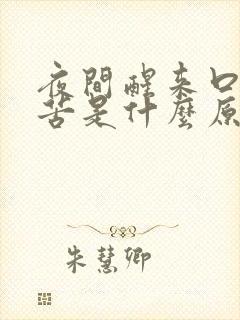 夜間醒來口
苦是什麼原
朱慧卿